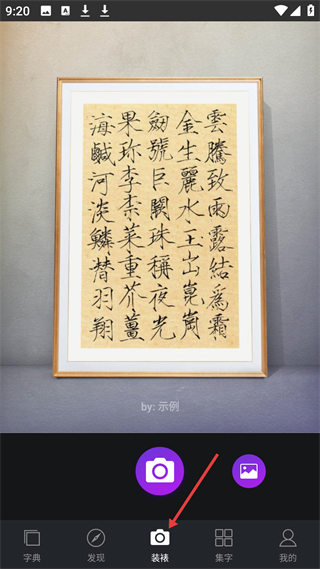 9:20
雲騰致雨露結爲霜
金生麗水玉出崑崗
劒號巨闕珠稱夜光
果珎李柰菜重芥薑
海鹹河淡鱗潛羽翔
by: 示例
字典
发现
装裱
集字
我的